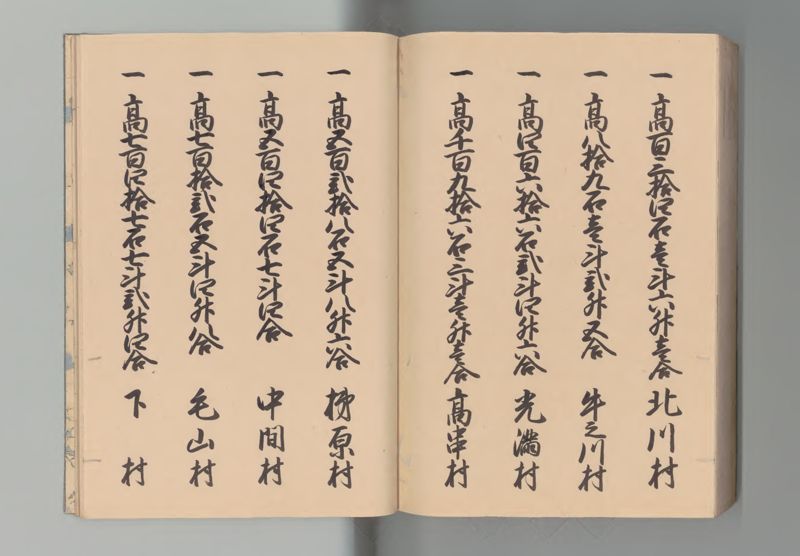 一 高百三拾四石壱斗六升壱合 北川村
一 高八拾九石壱斗弐升五合 牛之川村
一 高四百六拾六石弐斗四升六合 光満村
一 高千百九拾六石三斗壱升壱合 高串村
一 高五百弐拾八石五斗八升六合 柿原村
一 高五百四拾四石七斗四合 中間村
一 高七百拾弐石五斗四升八合 毛山村
一 高七百四拾七石七斗弐升四合 下村